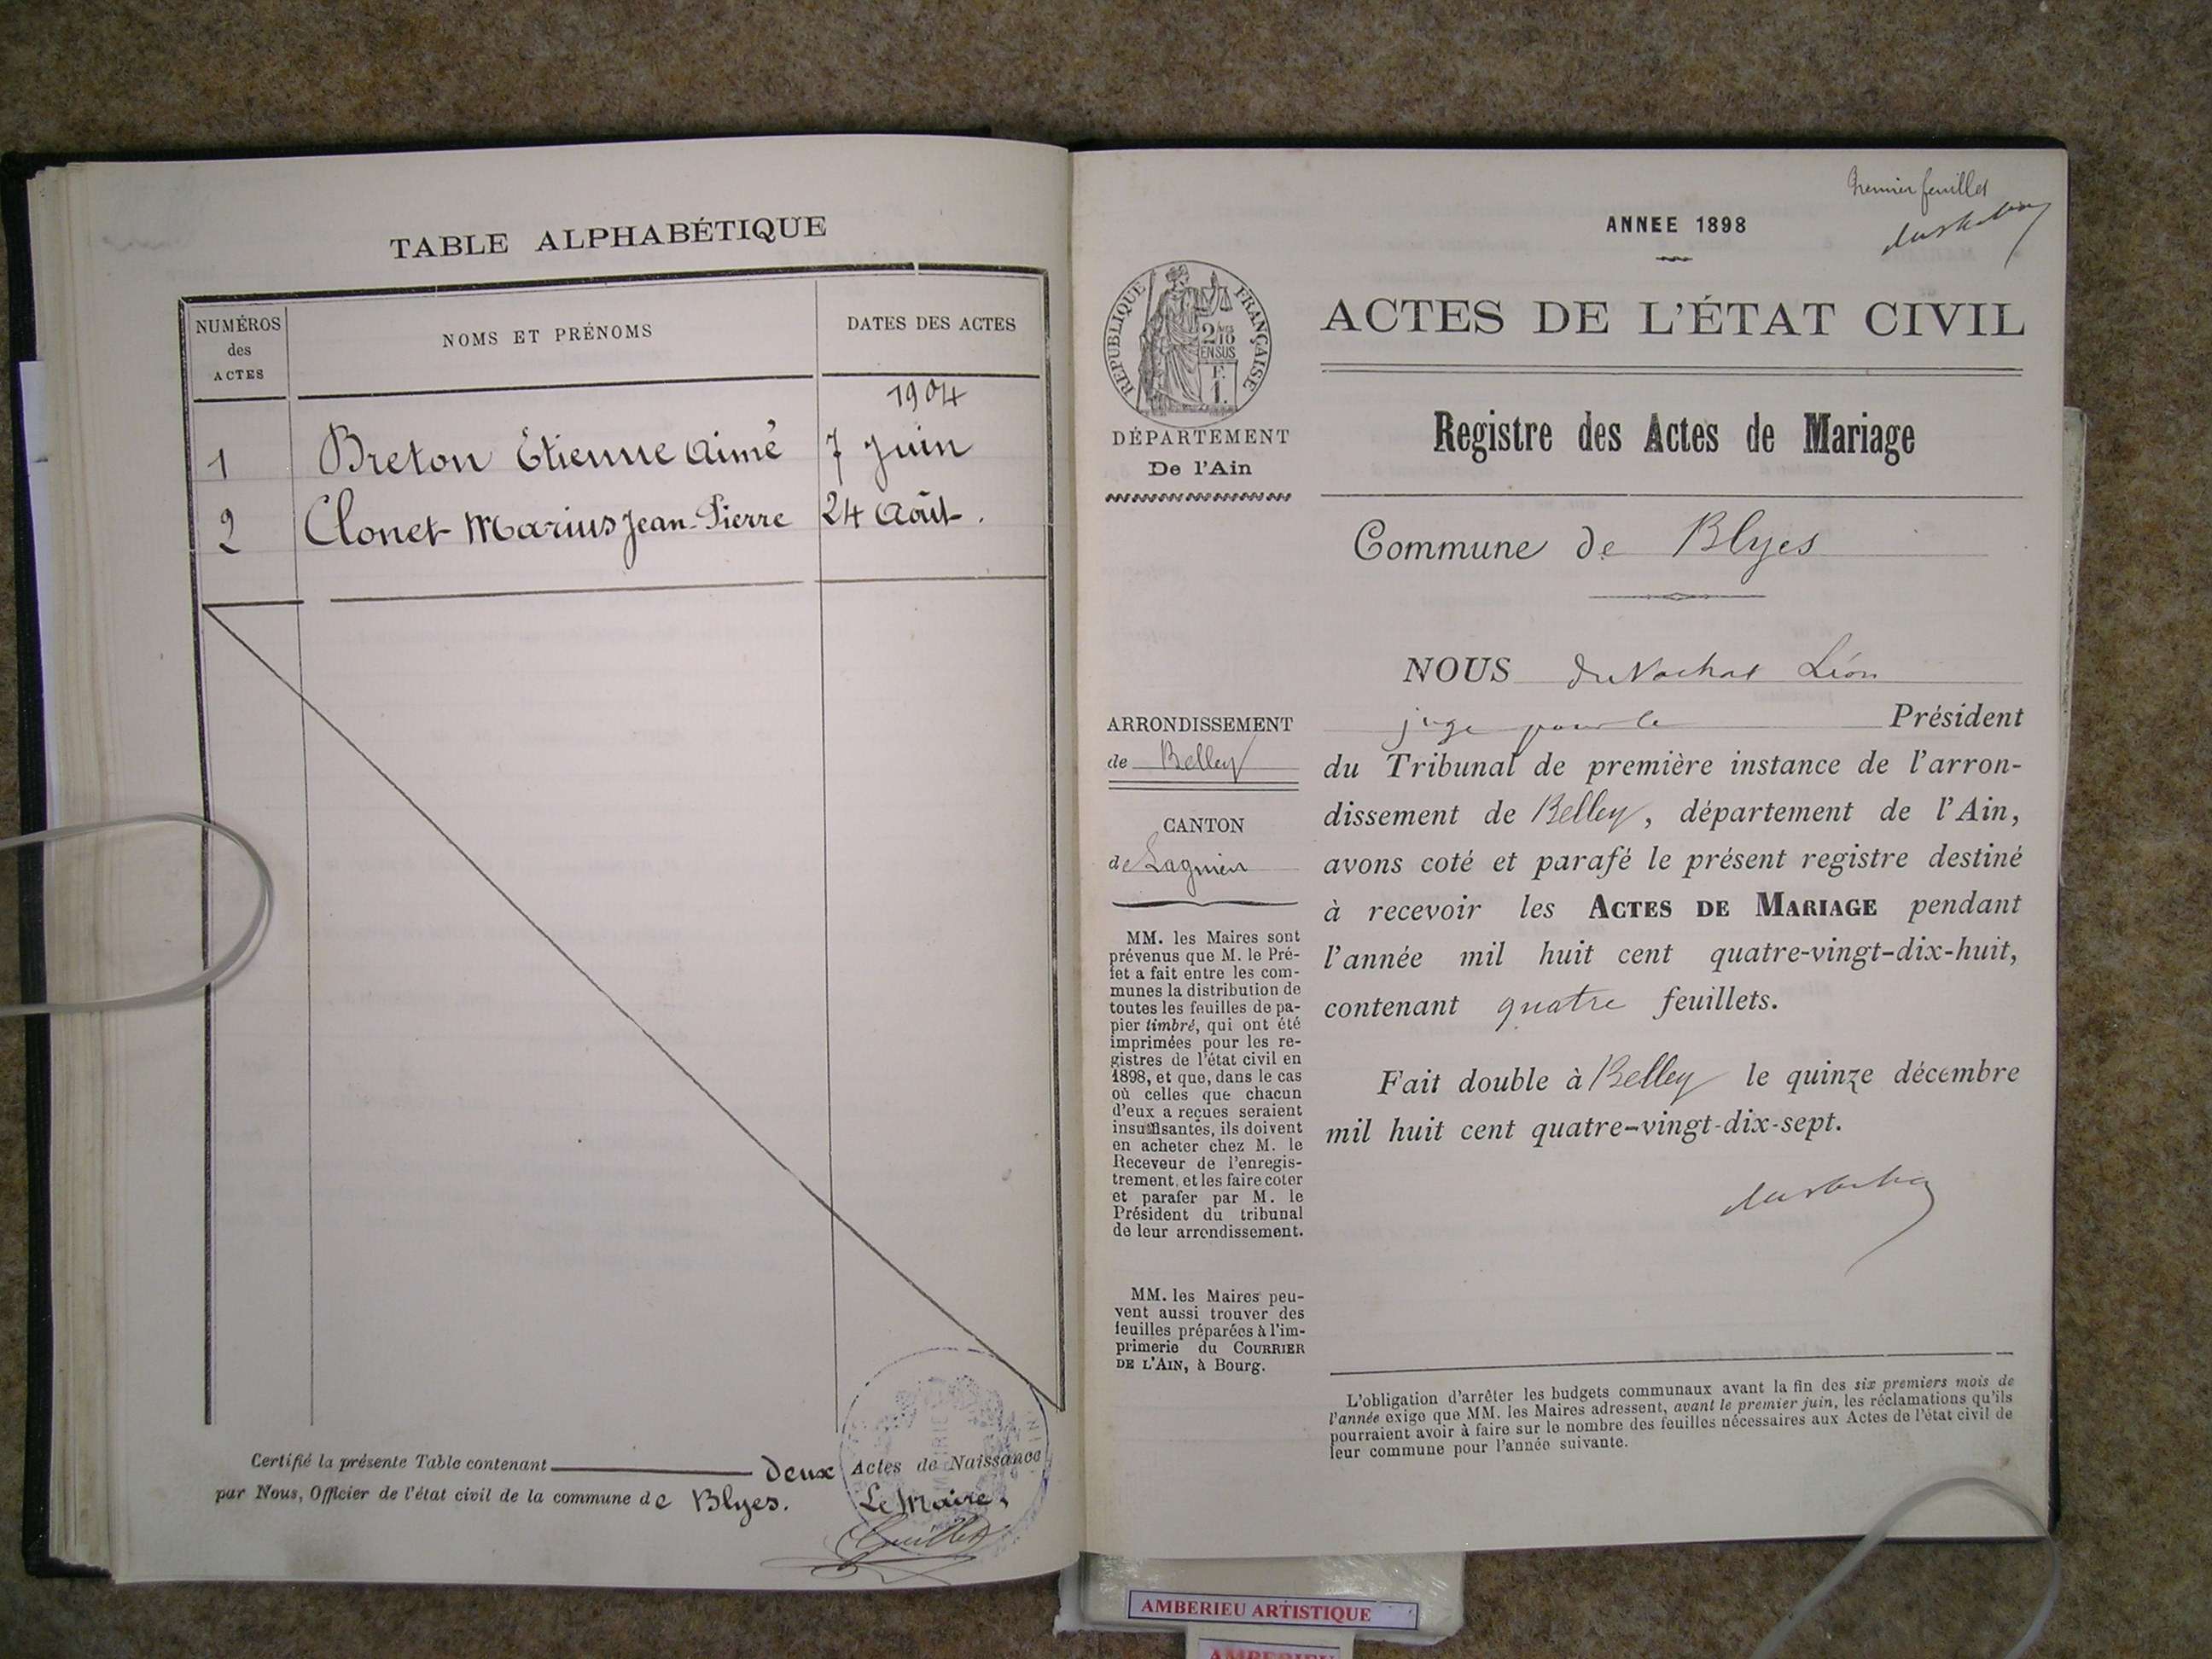 TABLE ALPHABÉTIQUE
NUMÉROS
des
ACTES
NOMS ET PRÉNOMS
DATES DES ACTES
1904
1 Breton Étienne Aimé 7 Juin
2 Clonet Marius Jean-Pierre 24 Août.
Certifié la présente Table contenant deux Actes de Naissance
par Nous, Officier de l'état civil de la commune de Blyes.
Le Maire,
Premier feuillet
ANNEE 1898
RÉPUBLIQUE FRANÇAISE
2/10
EN SUS
F.
1.
ACTES DE L'ÉTAT CIVIL
DÉPARTEMENT
De l'Ain
Registre des Actes de Mariage
Commune de Blyes
ARRONDISSEMENT
de Belley
CANTON
de Lagnieu
MM. les Maires sont
prévenus que M. le Pré-
fet a fait entre les com-
munes la distribution de
toutes les feuilles de pa-
pier timbré, qui ont été
imprimées pour les re-
gistres de l'état civil en
1898, et que, dans le cas
où celles que chacun
d'eux a reçues seraient
insuffisantes, ils doivent
en acheter chez M. le
Receveur de l'enregis-
trement, et les faire coter
et parafer par M. le
Président du tribunal
de leur arrondissement.
MM. les Maires peu-
vent aussi trouver des
feuilles préparées à l'im-
primerie du COURRIER
DE L'AIN, à Bourg.
NOUS du Nachat Léon
juge pour le Président
du Tribunal de première instance de l'arron-
dissement de Belley, département de l'Ain,
avons coté et parafé le présent registre destiné
à recevoir les ACTES DE MARIAGE pendant
l'année mil huit cent quatre-vingt-dix-huit,
contenant quatre feuillets.
Fait double à Belley le quinze décembre
mil huit cent quatre-vingt-dix-sept.
L'obligation d'arrêter les budgets communaux avant la fin des six premiers mois de
l'année exige que MM. les Maires adressent, avant le premier juin, les réclamations qu'ils
pourraient avoir à faire sur le nombre des feuilles nécessaires aux Actes de l'état civil de
leur commune pour l'année suivante.
AMBERIEU ARTISTIQUE
AMBERIEU